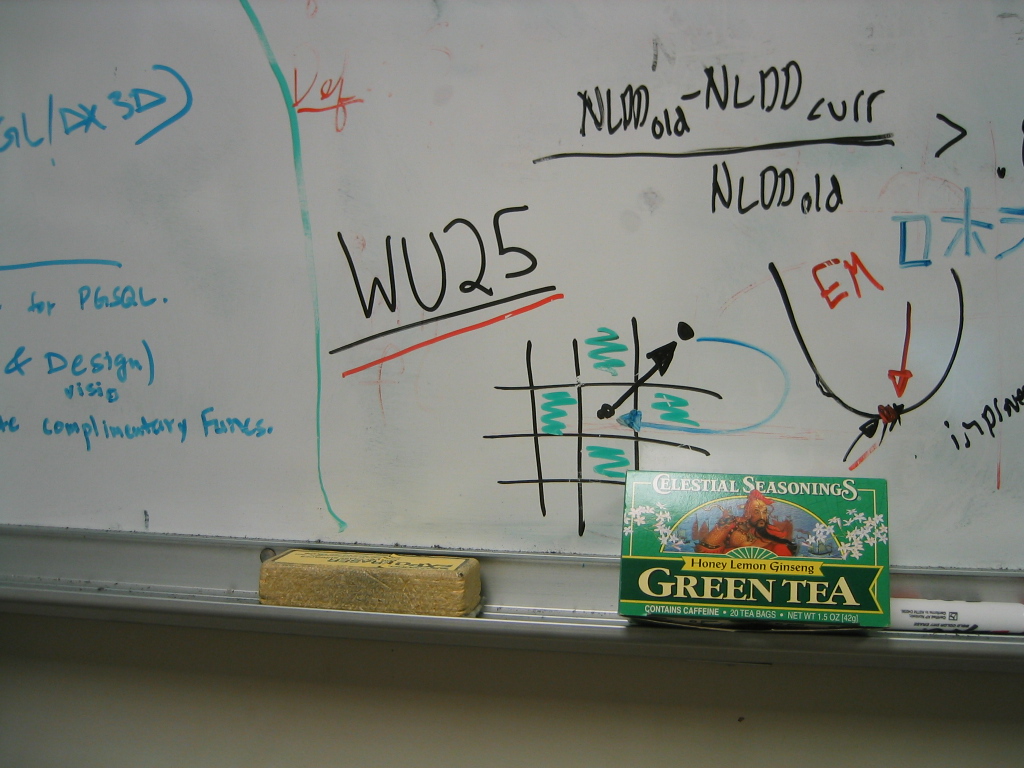 GL/DX 3D)
for PGSQL.
& Design)
visio
complimentary Funcs.
Def
NLDDold - NLDDcurr
NLDDold
> .
WU25
EM
ロボ
CELESTIAL SEASONINGS
Honey Lemon Ginseng
GREEN TEA
CONTAINS CAFFEINE • 20 TEA BAGS • NET WT 1.5 OZ [42g]